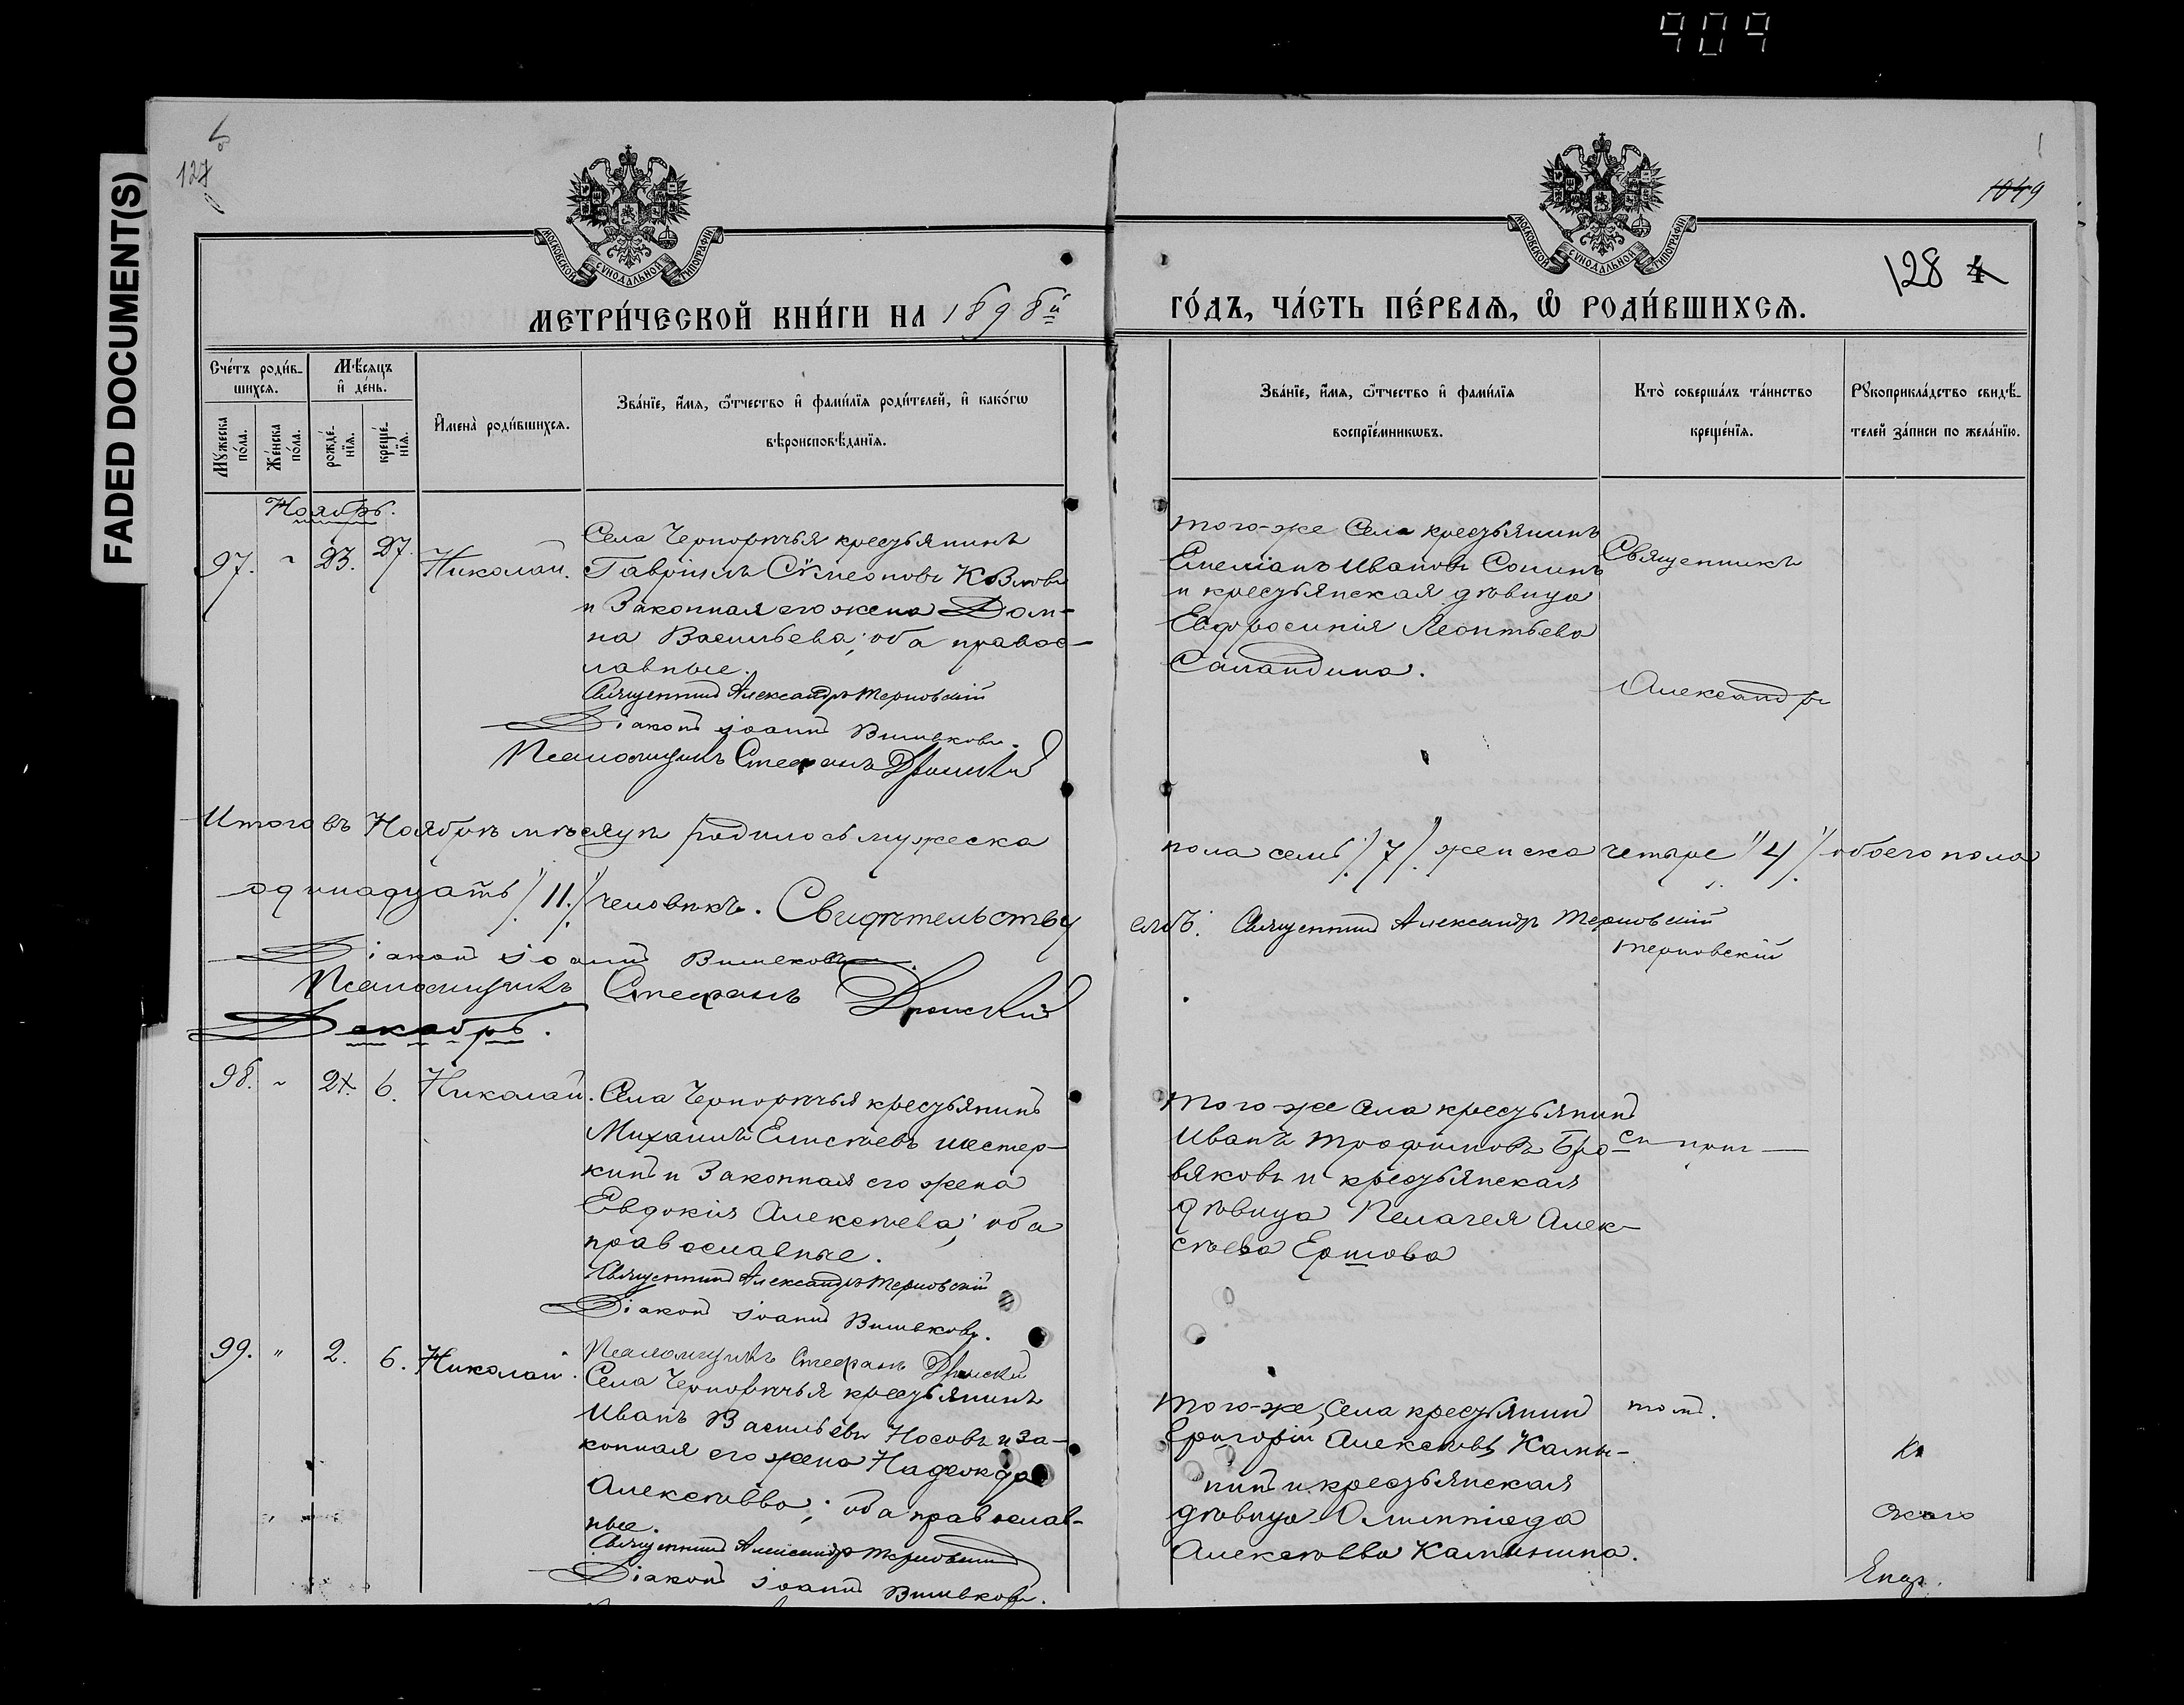 909
FADED DOCUMENT(S)
127
1049
128
МОСКОВСКОЙ СУНОДАЛЬНОЙ ТИПОГРАФІИ
МОСКОВСКОЙ СУНОДАЛЬНОЙ ТИПОГРАФІИ
МЕТРИ́ЧЕСКОЙ КНИ́ГИ НА 1898й
ГО́ДЪ, ЧА́СТЬ ПЕ́РВАѦ, Ѡ҆ РОДИ́ВШИХСѦ.
Сче́тъ роди́в-
шихся.
Мѣ́сяцъ
и҆ де́нь.
Мꙋ́жеска
по́ла.
Же́нска
по́ла.
рожде́-
нїя.
креще́-
нїя.
И҆мена̀ роди́вшихся.
Зва́нїе, и҆́мя, ѻ҆́тчество и҆ фамѝлїя роди́телей, и҆ како́гѡ
вѣроисповѣ́данїя.
Зва́нїе, и҆́мя, ѻ҆́тчество и҆ фами́лїя
воспрїе́мникѡвъ.
Кто̀ соверша́лъ та́инство
креще́нїя.
Рꙋкоприкла́дство свидѣ́-
телей за́писи по жела́нїю.
Ноябрь.
97. " 23. 27 Николай.
Села Чернорѣчья крестьянинъ
Гавріилъ Сѵмеоновъ
и законная его жена Дом-
на Васильева; оба правос-
лавные.
Священникъ Александръ Терновскій
Діаконъ Іоаннъ
Псаломщикъ Стефанъ
того-же села крестьянинъ
Емеліанъ Ивановъ Сонинъ
и крестьянская дѣвица
Евфросинія Леонтьева
Саландина.
Священникъ
Александръ
Итого въ Ноябрѣ мѣсяцѣ родилось мужеска
пола семь /7/ женска четыре /4/ обоего пола
одинадцать /11./ человѣкъ. Свидѣтельству
емъ: Священникъ Александръ Терновскій
Терновскій
Діаконъ Іоаннъ
Псаломщикъ Стефанъ
Декабрь.
98. " 6. Николай.
Села Чернорѣчья крестьянинъ
Михаилъ Елисѣевъ Шестер-
кинъ и законная его жена
Евдокія Алексѣева; оба
православные.
Священникъ Александръ Терновскій
Діаконъ Іоаннъ
Псаломщикъ Стефанъ
того-же села крестьянинъ
Иванъ Трофимовъ
и крестьянская
дѣвица Пелагея Алек-
сѣева Ершова
99. " 2. 6. Николай.
Села Чернорѣчья крестьянинъ
Иванъ Васильевъ Носовъ и за-
конная его жена Надежда
Алексѣева; оба православ-
ные.
Священникъ Александръ Терновскій
Діаконъ Іоаннъ
того-же села крестьянинъ
Григорій Алексѣевъ Калмы-
нинъ и крестьянская
дѣвица Олимпіада
Алексѣева
тотъ.